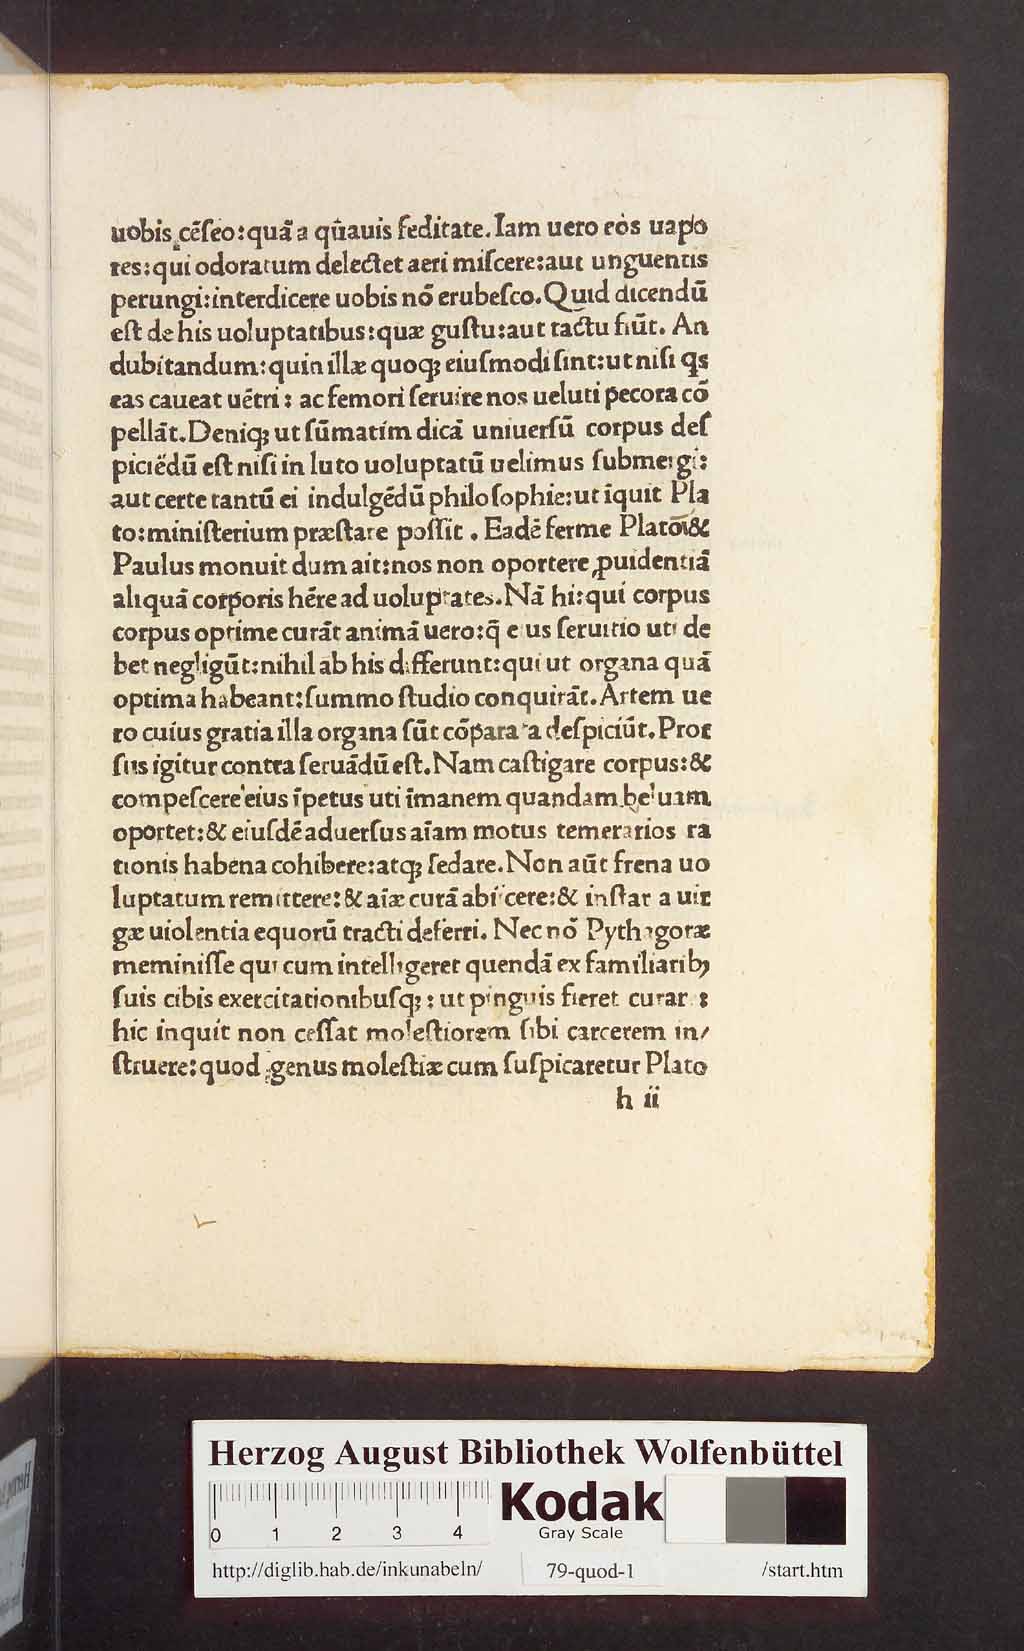 uobis cēſeo:quā a q̄uauis feditate.Iam uero eos uapo
res:qui odoratum delectet aeri miſcere:aut unguentis
perungi:interdicere uobis nō erubeſco.Quid dicendū
eſt de his uoluptatibus:quæ guſtu:aut tactu fiūt. An
dubitandum:quin illæ quoq; eiuſmodi ſint:ut niſi q̄s
eas caueat uētri: ac femori ſeruire nos ueluti pecora cō
pellāt.Deniq; ut ſūmatim dicā uniuerſū corpus deſ
piciēdū eſt niſi in luto uoluptatū uelimus ſubmergi:
aut certe tantū ei indulgēdū philoſophie:ut īquit Pla
to:miniſterium præſtare poſſit . Eadē ferme Platoī&
Paulus monuit dum ait:nos non oportere ꝓuidentiā
aliquā corporis hēre ad uoluptates.Nā hi:qui corpus
corpus optime curāt animā uero:q̄ eius ſeruitio uti de
bet negligūt:nihil ab his differunt:qui ut organa quā
optima habeant:ſummo ſtudio conquirāt.Artem ue
ro cuius gratia illa organa ſūt cōparata deſpiciūt.Pror
ſus igitur contra ſeruādū eſt.Nam caſtigare corpus:&
compeſcere eius īpetus uti īmanem quandam beluam
oportet:& eiuſdē aduerſus aīam motus temerarios ra
tionis habena cohibere:atq; ſedare.Non aūt frena uo
luptatum remittere:& aīæ curā abiicere:& inſtar a uir
gæ uiolentia equorū tracti deferri. Nec nō Pythagoræ
meminiſſe qui cum intelligeret quendā ex familiarib;
ſuis cibis exercitationibuſq; : ut pinguis fieret curar :
hic inquit non ceſſat moleſtiorem ſibi carcerem in/
ſtruere:quod genus moleſtiæ cum ſuſpicaretur Plato
h ii
Herzog August Bibliothek Wolfenbüttel
0 1 2 3 4
Kodak
Gray Scale
http://diglib.hab.de/inkunabeln/ 79-quod-1 /start.htm